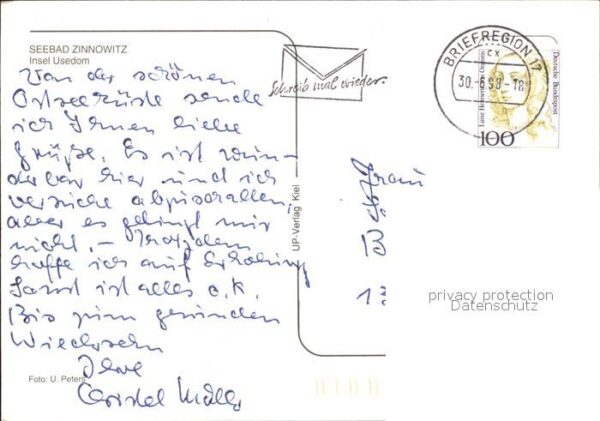 SEEBAD ZINNOWITZ
Insel Usedom
Von der schönen
Ostseeküste sende
ich Ihnen liebe
Grüße. Es ist wun-
derbar hier und ich
versuche abzuschalten,
aber es gelingt mir
nicht. – Trotzdem
hoffe ich auf Erholung
Sonst ist alles o.k.
Bis zum gesunden
Wiedersehn
Ihre
Christel
Foto: U. Peters
UP-Verlag Kiel
Schreib mal wieder.
BRIEFREGION 17
cx
30.-6.98-18
Deutsche Bundespost
Luise Henriette von Oranien
100
Frau
privacy protection
Datenschutz